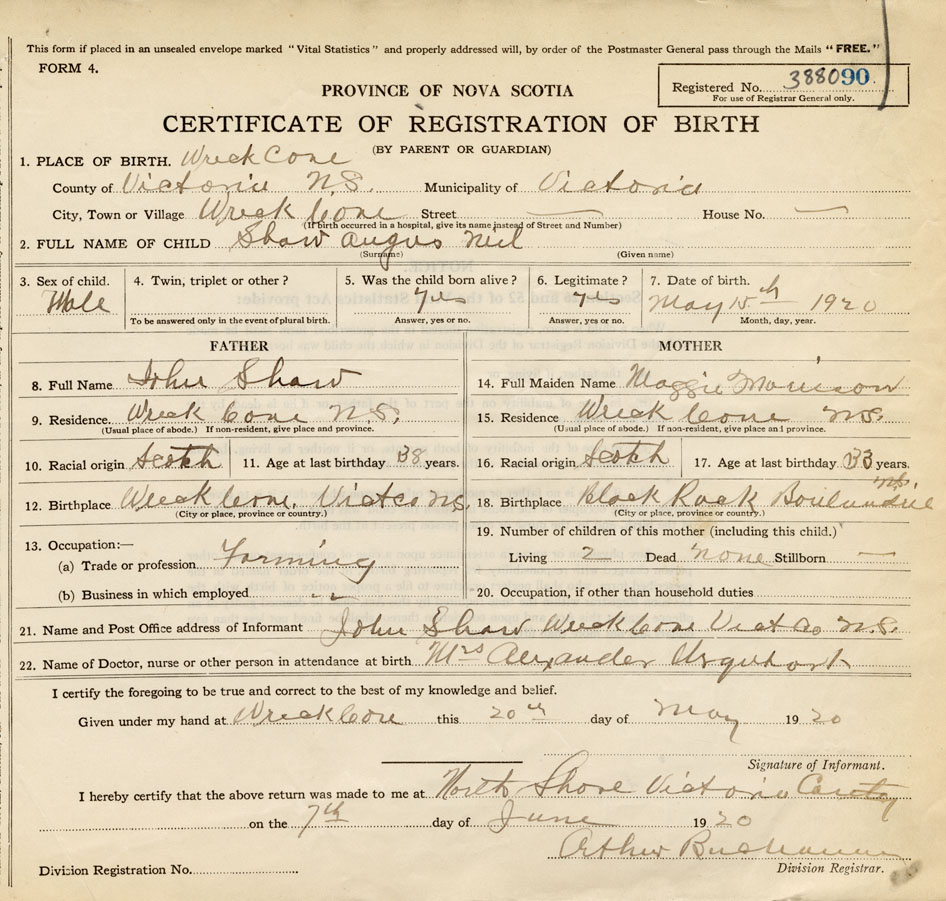 This form if placed in an unsealed envelope marked "Vital Statistics" and properly addressed will, by order of the Postmaster General pass through the Mails "FREE."
FORM 4.
Registered No. 38809O.
For use of Registrar General only.
PROVINCE OF NOVA SCOTIA
CERTIFICATE OF REGISTRATION OF BIRTH
(BY PARENT OR GUARDIAN)
1. PLACE OF BIRTH. Wreck Cove
County of Victoria N.S. Municipality of Victoria
City, Town or Village Wreck Cove Street — House No. —
(If birth occurred in a hospital, give its name instead of Street and Number)
2. FULL NAME OF CHILD Shaw Angus Neil
(Surname) (Given name)
3. Sex of child. 4. Twin, triplet or other? 5. Was the child born alive? 6. Legitimate? 7. Date of birth.
Male yes yes May 15th 1920
To be answered only in the event of plural birth. Answer, yes or no. Answer, yes or no. Month, day, year.
FATHER MOTHER
8. Full Name John Shaw 14. Full Maiden Name Maggie Morrison
9. Residence. Wreck Cove N.S. 15. Residence Wreck Cove N.S.
(Usual place of abode.) If non-resident, give place and province. (Usual place of abode.) If non-resident, give place and province.
10. Racial origin Scotch 11. Age at last birthday 38 years. 16. Racial origin Scotch 17. Age at last birthday 33 years.
12. Birthplace Wreck Cove, Vict co N.S. 18. Birthplace Black Rock N.S.
(City or place, province or country.) (City or place, province or country.)
13. Occupation:— 19. Number of children of this mother (including this child.)
(a) Trade or profession Farming Living 2 Dead none Stillborn —
(b) Business in which employed 20. Occupation, if other than household duties
21. Name and Post Office address of Informant John Shaw Wreck Cove Vict Co N.S.
22. Name of Doctor, nurse or other person in attendance at birth Mrs Alexander Urquhart
I certify the foregoing to be true and correct to the best of my knowledge and belief.
Given under my hand at Wreck Cove this 20th day of May 1920
Signature of Informant.
I hereby certify that the above return was made to me at North Shore Victoria County
on the 7th day of June 1920
Arthur Buchanan
Division Registration No. Division Registrar.